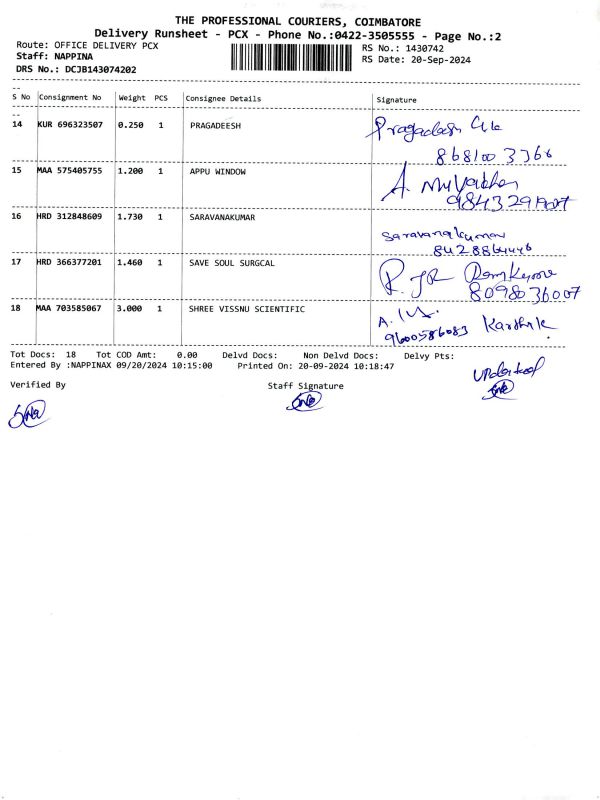 THE PROFESSIONAL COURIERS, COIMBATORE
Delivery Runsheet - PCX - Phone No.:0422-3505555 - Page No.:2
Route: OFFICE DELIVERY PCX RS No.: 1430742
Staff: NAPPINA RS Date: 20-Sep-2024
DRS No.: DCJB143074202
S No Consignment No Weight PCS Consignee Details Signature
14 KUR 696323507 0.250 1 PRAGADEESH Pragadesh
868100 3366
15 MAA 575405755 1.200 1 APPU WINDOW A.
16 HRD 312848609 1.730 1 SARAVANAKUMAR
Saravanakumar
17 HRD 366377201 1.460 1 SAVE SOUL SURGCAL
8098036007
18 MAA 703585067 3.000 1 SHREE VISSNU SCIENTIFIC A.
9600586083 Karthik
Tot Docs: 18 Tot COD Amt: 0.00 Delvd Docs: Non Delvd Docs: Delvy Pts:
Entered By :NAPPINAX 09/20/2024 10:15:00 Printed On: 20-09-2024 10:18:47
Verified By Staff Signature